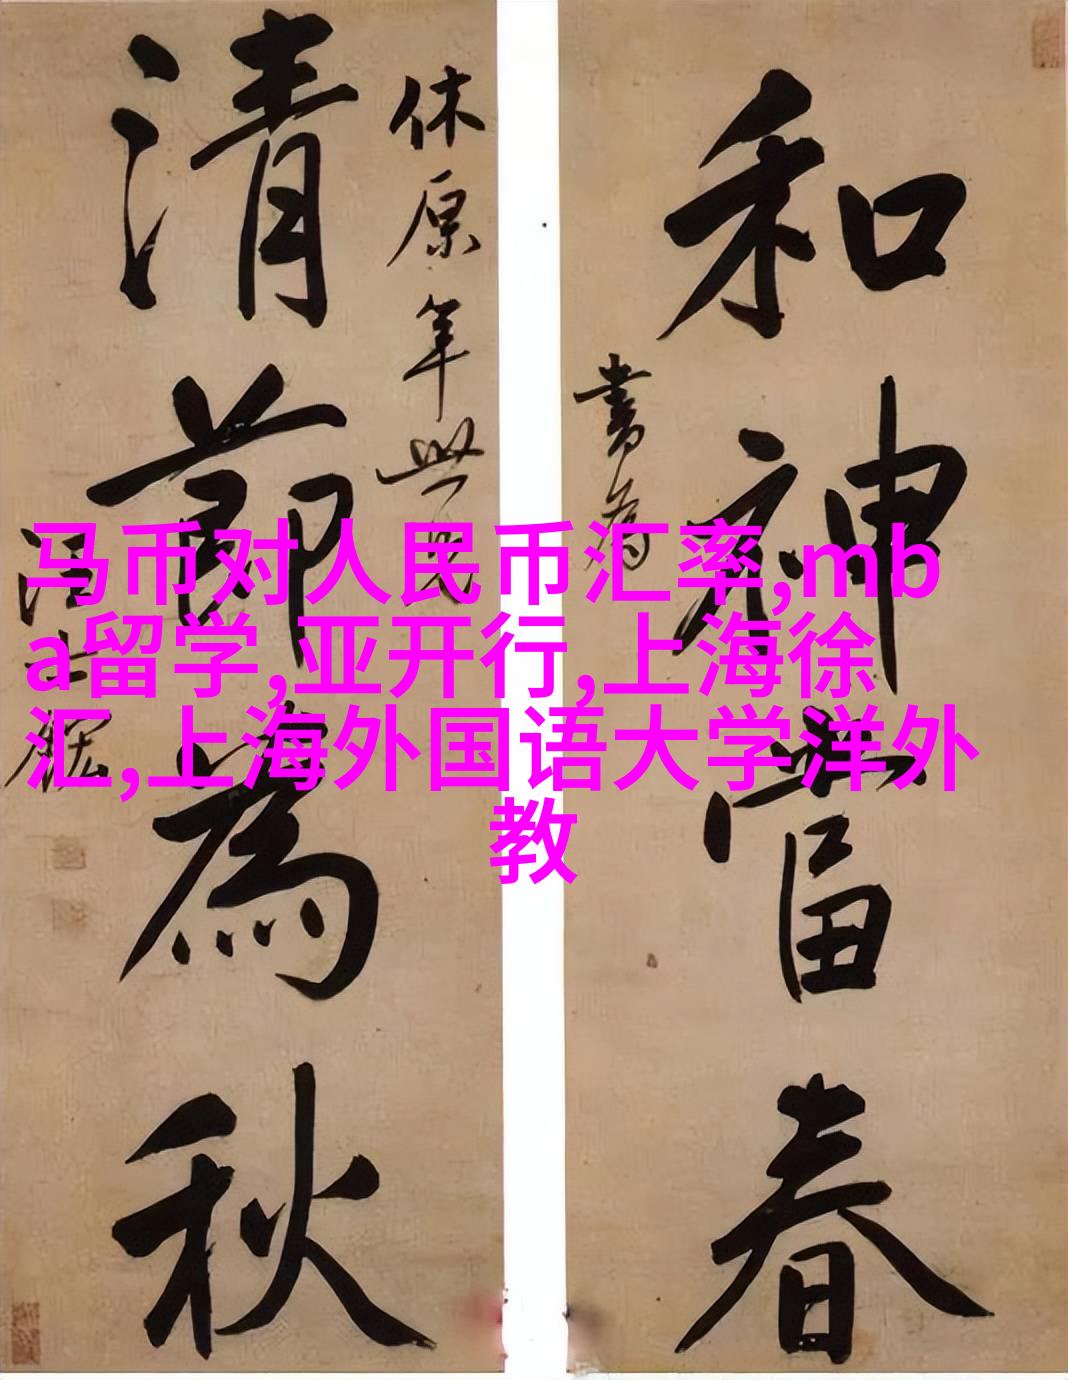 和神當春
書為
休原年世兄
清節為秋
汪士鋐
马币对人民币汇率,mb
a留学,亚开行,上海徐
汇,上海外国语大学洋外
教